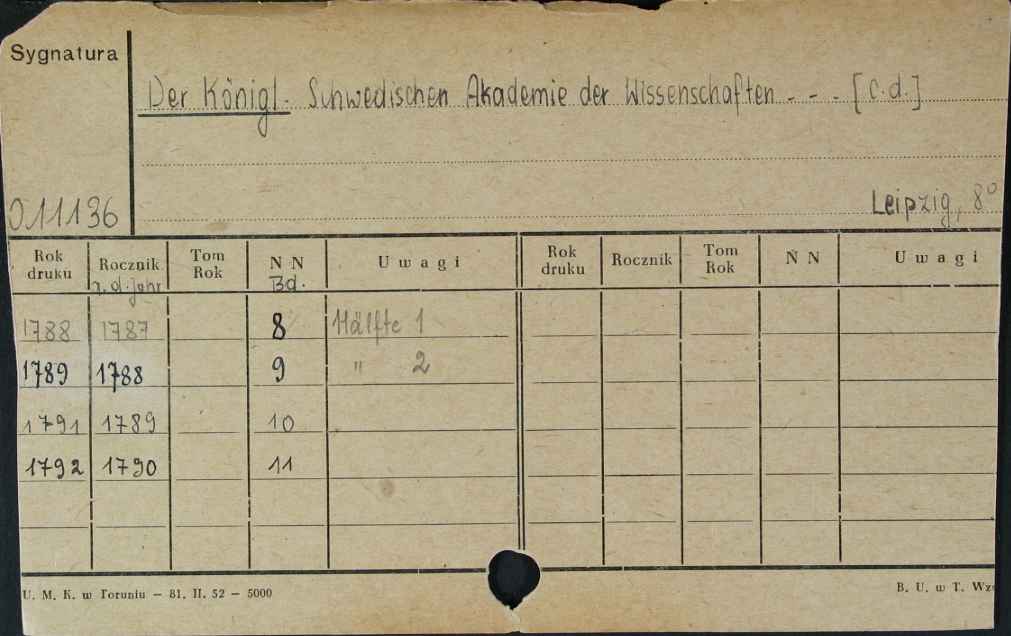 Sygnatura
Der Königl. Schwedischen Akademie der Wissenschaften - - - [c.d.]
011136
Leipzig, 8°
Rok druku Rocznik Tom Rok N N Uwagi Rok druku Rocznik Tom Rok N N Uwagi
a.d. Jahr Bd.
1788 1787 8 Hälfte 1
1789 1788 9 " 2
1791 1789 10
1792 1790 11
U. M. K. w Toruniu — 81. II. 52 — 5000 B. U. w T. Wz